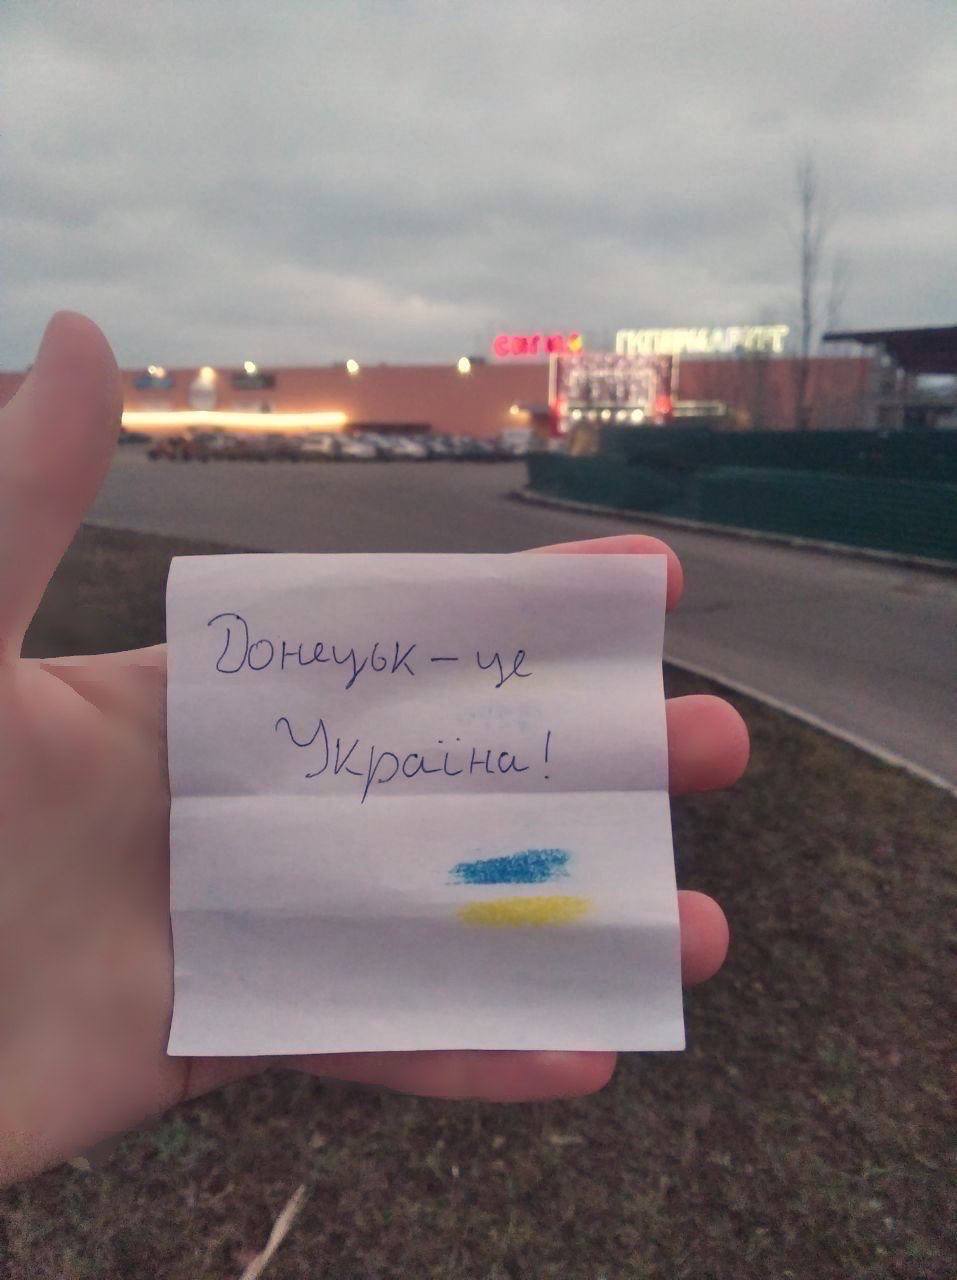 ГІПЕРМАРКЕТ
Донецьк – це
Україна!